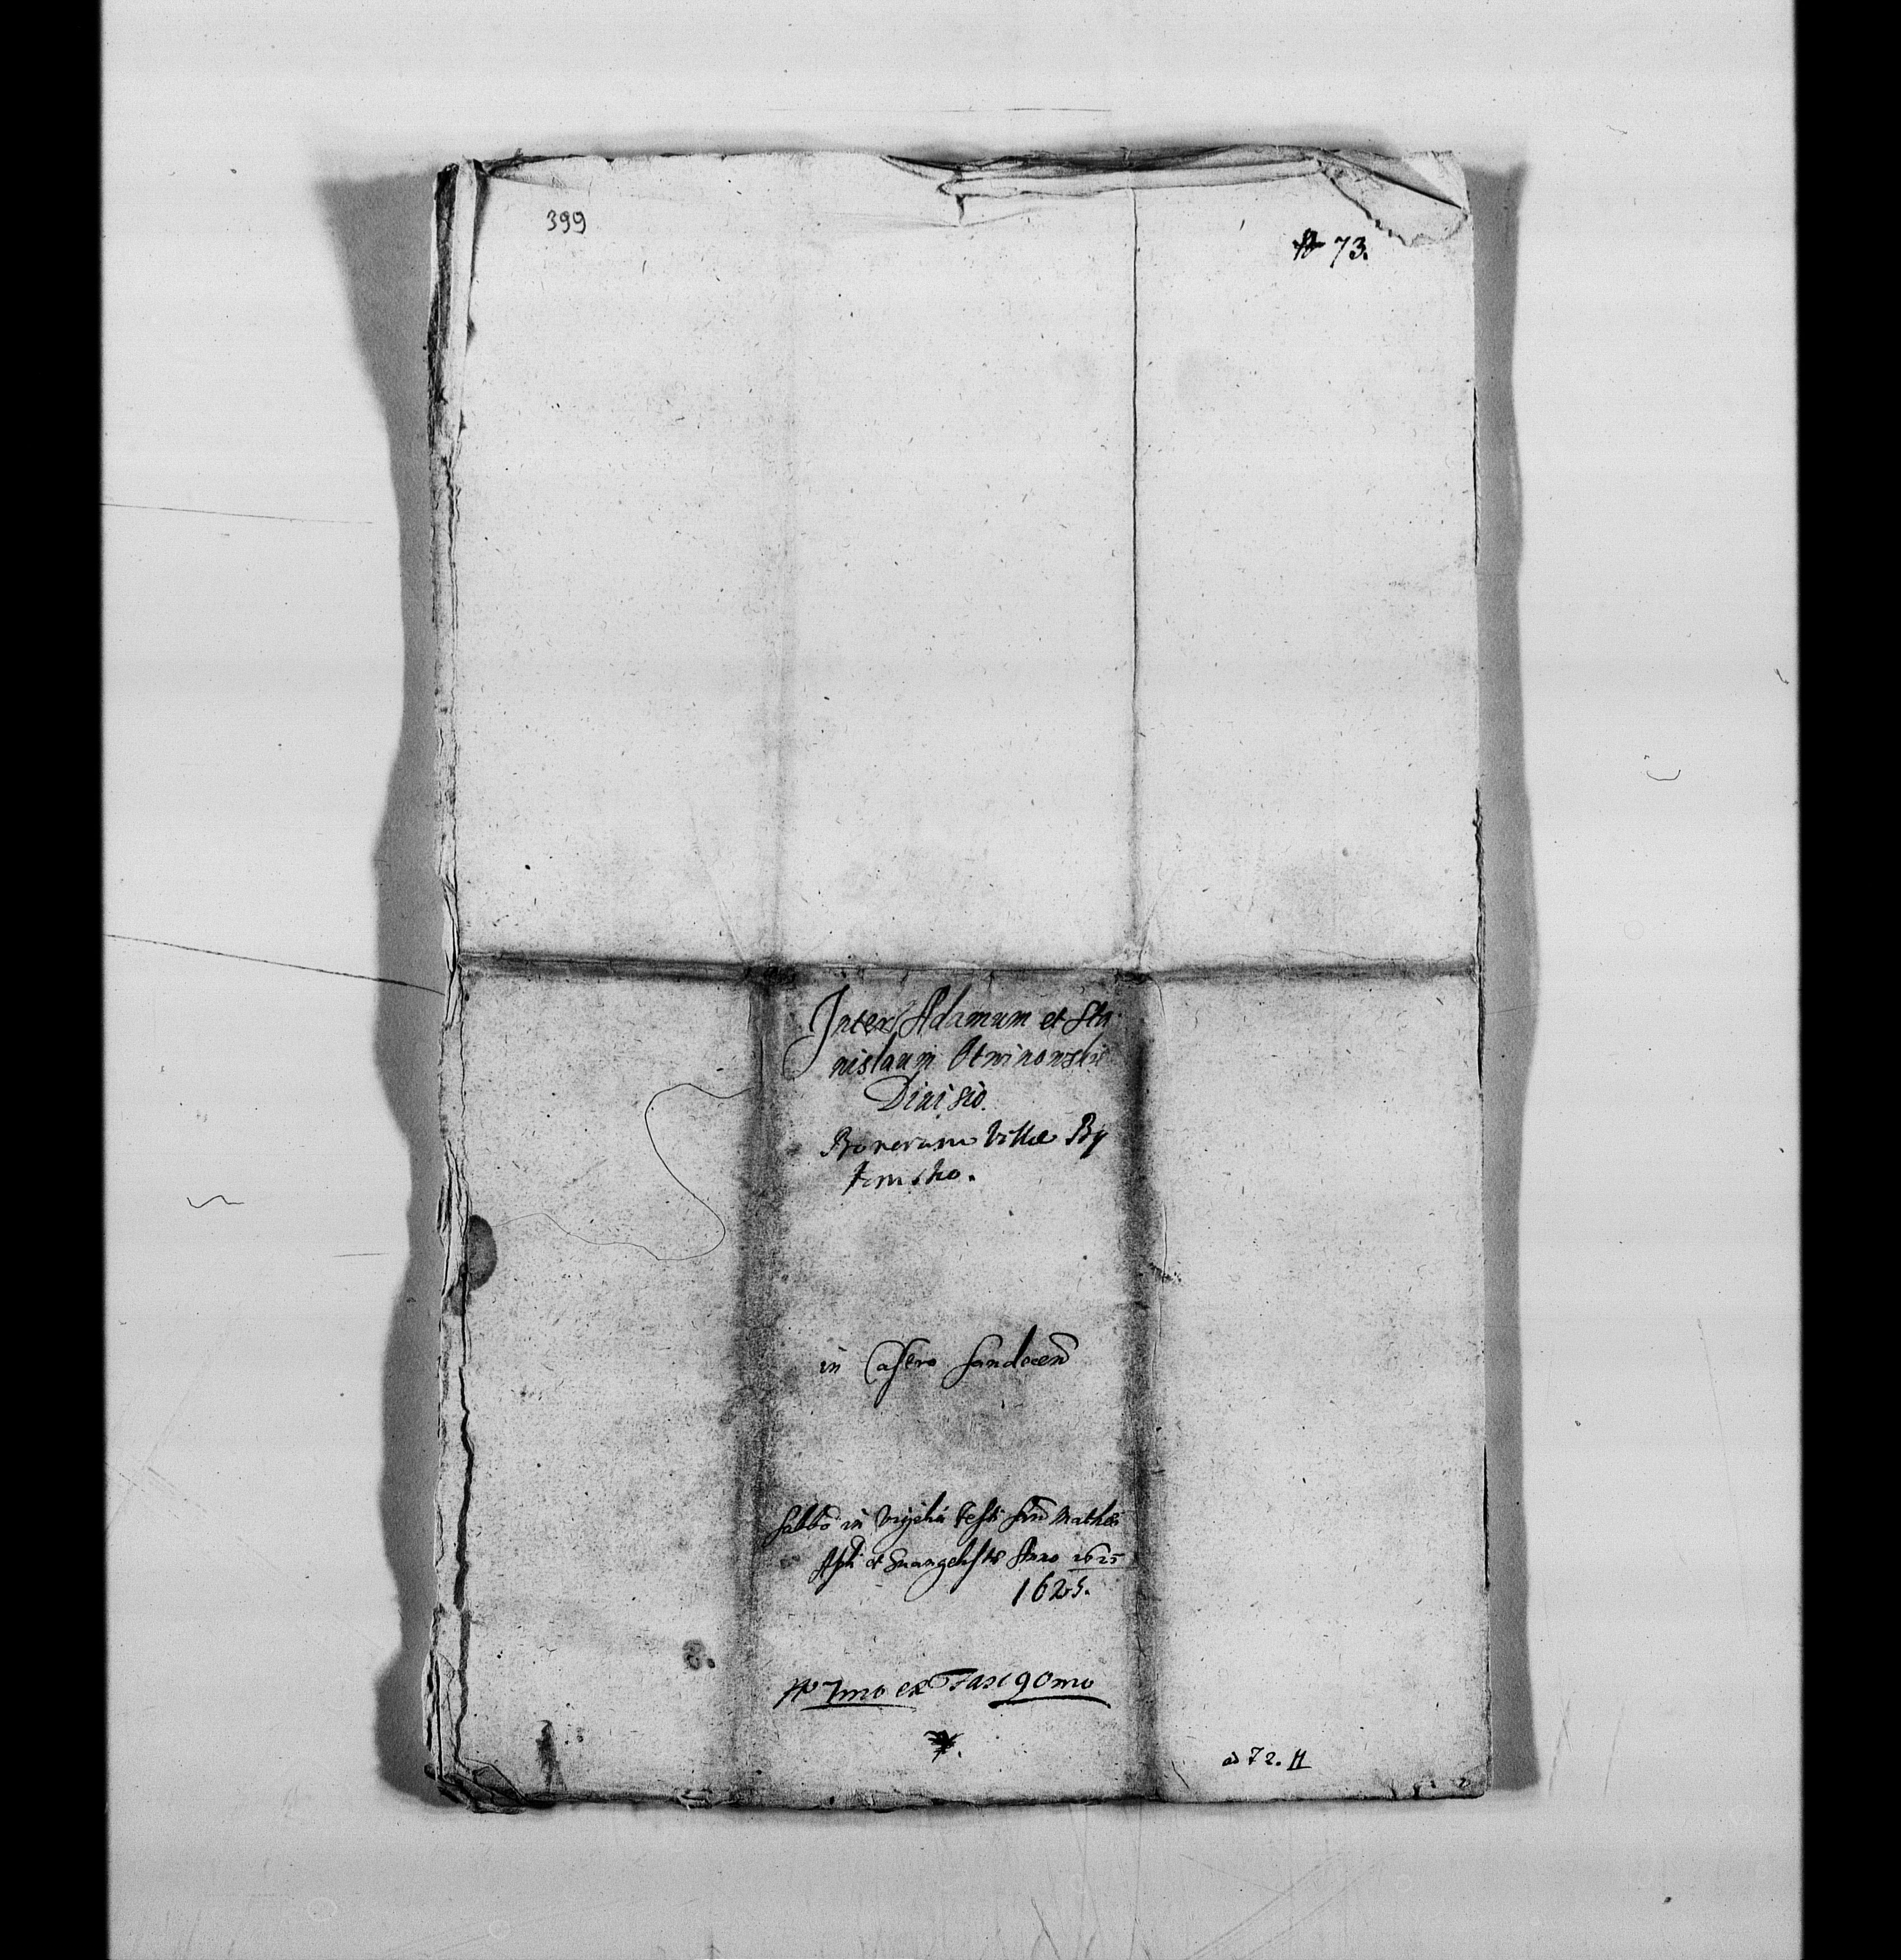 399
No 73.
Inter Adamum et Sta
nislaum Otwinowskie
Diuisio.
Bonorum Villæ By
tomsko.
in Castro Sandecen
Sabbo in Vigilia Festi Sancti Mathei
Apli et Euangelistæ Anno 1625
1625.
No 7mo ex Fasc 9omo
ad 72. H